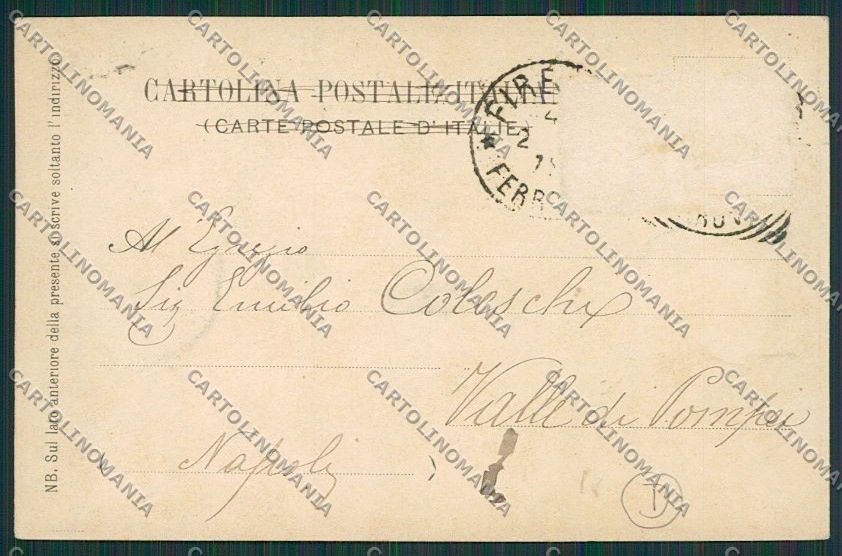 CARTOLINA POSTALE ITALIANA
(CARTE POSTALE D'ITALIE)
FIRE
2
FERR
Al Egregio
Sig Emilio Coleschi
Valle di Pompei
Napoli
NB. Sul lato anteriore della presente si scrive soltanto l'indirizzo
CARTOLINOMANIA